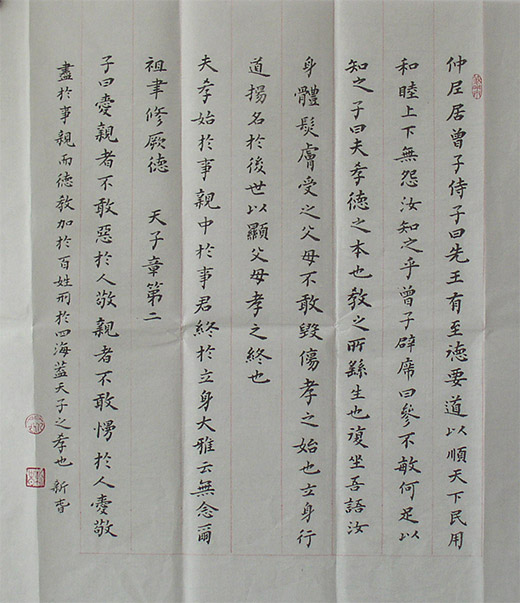 仲尼居曾子侍子曰先王有至德要道以順天下民用
和睦上下無怨汝知之乎曾子辟席曰參不敏何足以
知之子曰夫孝德之本也教之所繇生也復坐吾語汝
身體髮膚受之父母不敢毀傷孝之始也立身行
道揚名於後世以顯父母孝之終也
夫孝始於事親中於事君終於立身大雅云無念爾
祖聿修厥德　天子章第二
子曰愛親者不敢惡於人敬親者不敢慢於人愛敬
盡於事親而德教加於百姓刑於四海蓋天子之孝也 新